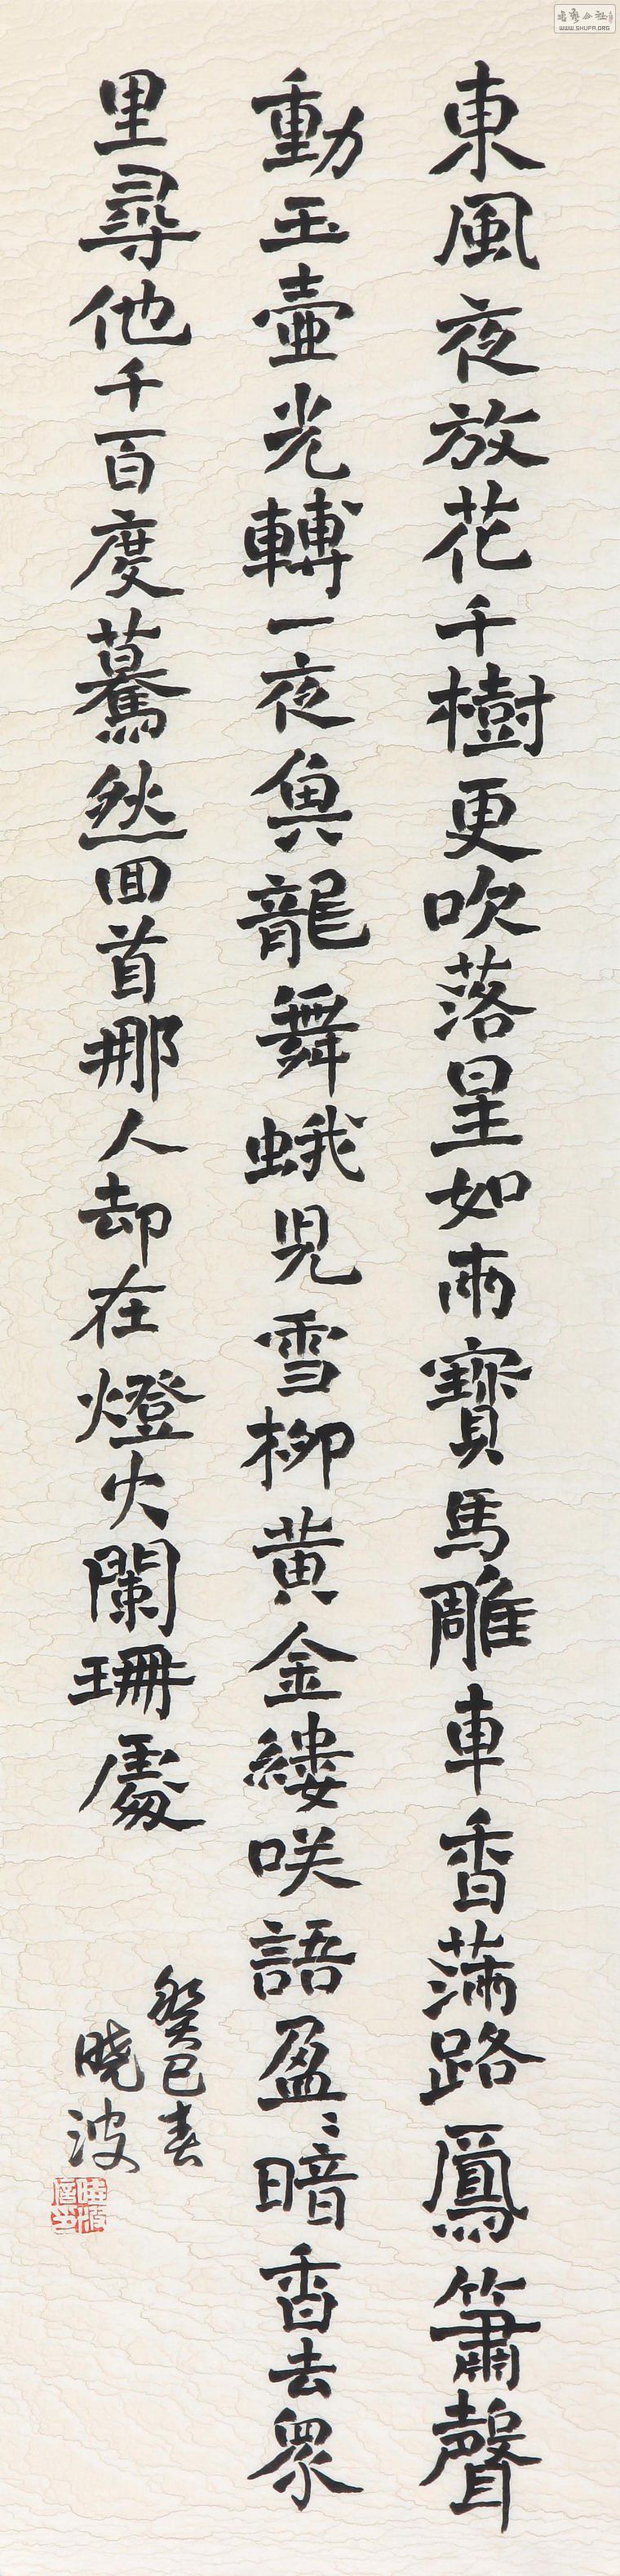 東風夜放花千樹更吹落星如雨寳馬雕車香滿路鳳簫聲
動玉壷光轉一夜魚龍舞蛾児雪柳黄金縷咲語盈〻暗香去眾
里尋他千百度驀然回首那人却在燈火闌珊處
癸巳春
曉波
WWW.SHUFA.ORG